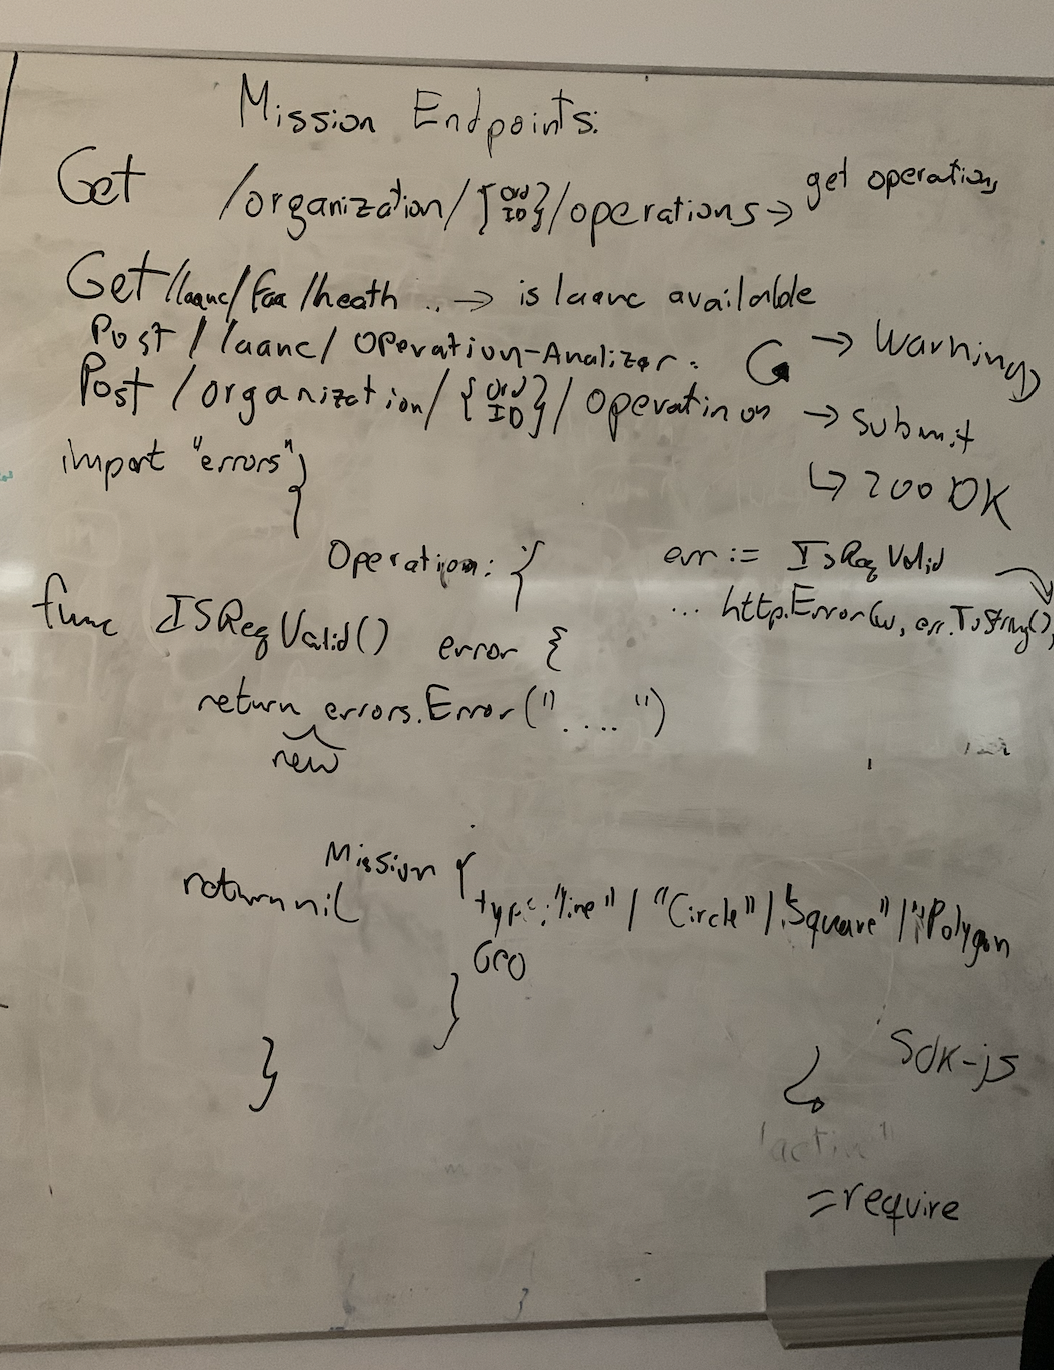 Mission Endpoints:
Get /organization/{Ord ID}/operations → get operations
Get /laanc/faa/heath .. → is laanc available
Post / laanc/ operation-Analizer. → Warning
Post / organization/ {Ord ID}/ operation → submit
↳ 200 OK
import "errors"}
Operation: {
err := IsReqValid
... http.Error(w, err.ToString(),
func ISReqValid() error {
return errors.Error("....")
new
Mission {
return nil
type: "line" / "Circle" / "Square" / "Polygon
Geo
}
}
Sdk-js
=require